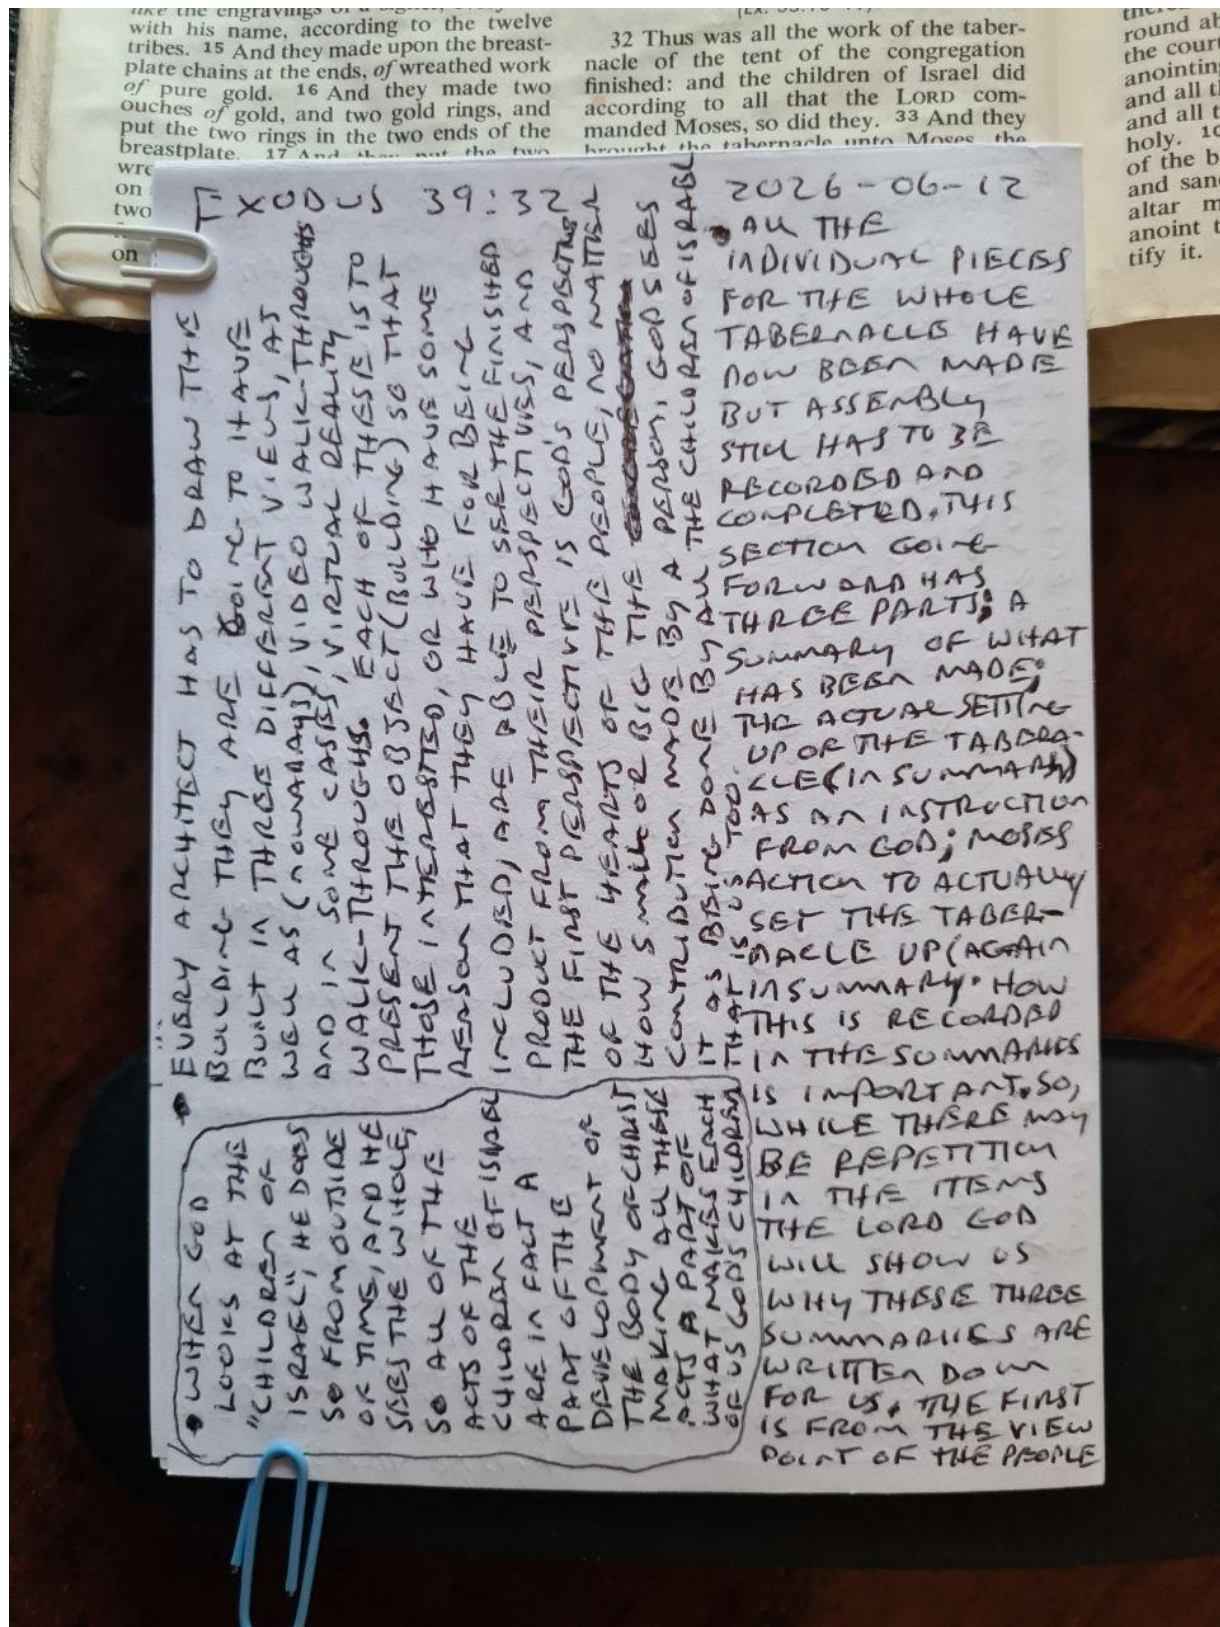 like the engravings of a signet, every
with his name, according to the twelve
tribes. 15 And they made upon the breast-
plate chains at the ends, of wreathed work
of pure gold. 16 And they made two
ouches of gold, and two gold rings, and
put the two rings in the two ends of the
breastplate. 17 And they put the two
wre
on
two
on
32 Thus was all the work of the taber-
nacle of the tent of the congregation
finished: and the children of Israel did
according to all that the LORD com-
manded Moses, so did they. 33 And they
brought the tabernacle unto Moses, the
round ab
the court
anointing
and all t
and all t
holy. 10
of the b
and san
altar m
anoint t
tify it.
EXODUS 39:32
2026-06-12
• ALL THE
INDIVIDUAL PIECES
FOR THE WHOLE
TABERNACLE HAVE
NOW BEEN MADE
BUT ASSEMBLY
STILL HAS TO BE
RECORDED AND
COMPLETED. THIS
SECTION GOING
FORWARD HAS
THREE PARTS; A
SUMMARY OF WHAT
HAS BEEN MADE;
THE ACTUAL SETTING
UP OF THE TABERA-
CLE (IN SUMMARY)
AS AN INSTRUCTION
FROM GOD; MOSES
ACTION TO ACTUALLY
SET THE TABER-
NACLE UP (AGAIN
IN SUMMARY. HOW
THIS IS RECORDED
IN THE SUMMARIES
IS IMPORTANT. SO,
WHILE THERE MAY
BE REPETITION
IN THE ITEMS
THE LORD GOD
WILL SHOW US
WHY THESE THREE
SUMMARIES ARE
WRITTEN DOWN
FOR US. THE FIRST
IS FROM THE VIEW
POINT OF THE PEOPLE
• EVERY ARCHITECT HAS TO DRAW THE
BUILDING THEY ARE GOING TO HAVE
BUILT IN THREE DIFFERENT VIEWS, AS
WELL AS (NOWADAYS), VIDEO WALK-THROUGHS
AND IN SOME CASES, VIRTUAL REALITY
WALK-THROUGHS. EACH OF THESE IS TO
PRESENT THE OBJECT (BUILDING) SO THAT
THOSE INTERESTED, OR WHO HAVE SOME
REASON THAT THEY HAVE FOR BEING
INCLUDED, ARE ABLE TO SEE THE FINISHED
PRODUCT FROM THEIR PERSPECTIVES, AND
THE FIRST PERSPECTIVE IS GOD'S PERSPECTIVE
OF THE HEARTS OF THE PEOPLE, NO MATTER
HOW SMALL OR BIG THE
CONTRIBUTION MADE BY A PERSON, GOD SEES
IT AS BEING DONE BY ALL THE CHILDREN OF ISRAEL
THAT IS US TOO.
• WHEN GOD
LOOKS AT THE
"CHILDREN OF
ISRAEL", HE DOES
SO FROM OUTSIDE
OF TIME, AND HE
SEES THE WHOLE,
SO ALL OF THE
ACTS OF THE
CHILDREN OF ISRAEL
ARE IN FACT A
PART OF THE
DEVELOPMENT OF
THE BODY OF CHRIST
MAKING ALL THESE
ACTS A PART OF
WHAT MAKES EACH
OF US GOD'S CHILDREN